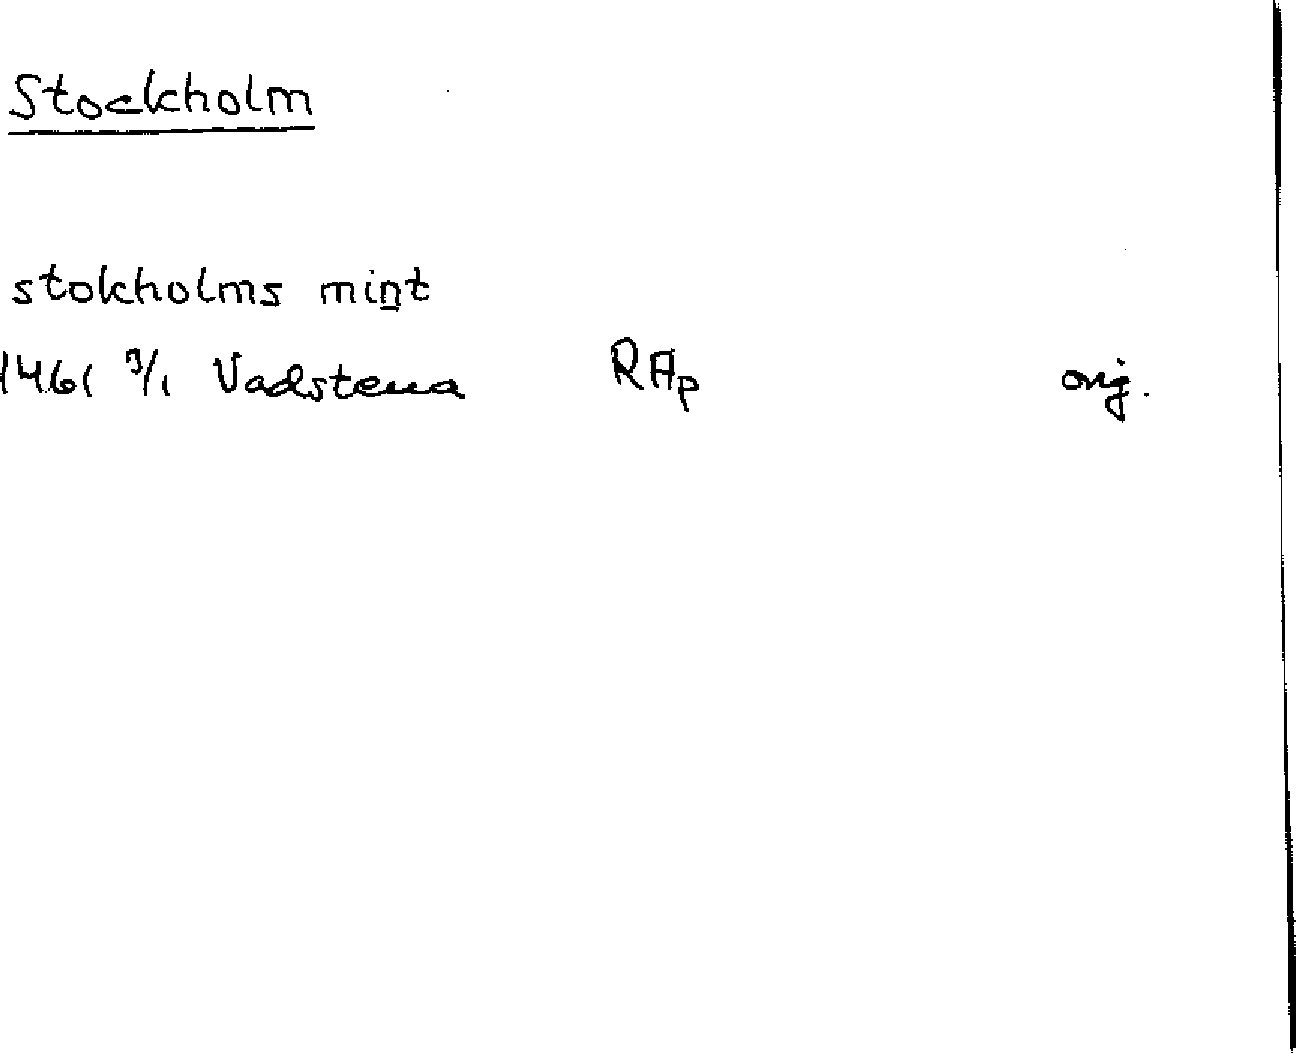 Stockholm
stokholms mint
1461 3/1 Vadstena RAp orig.